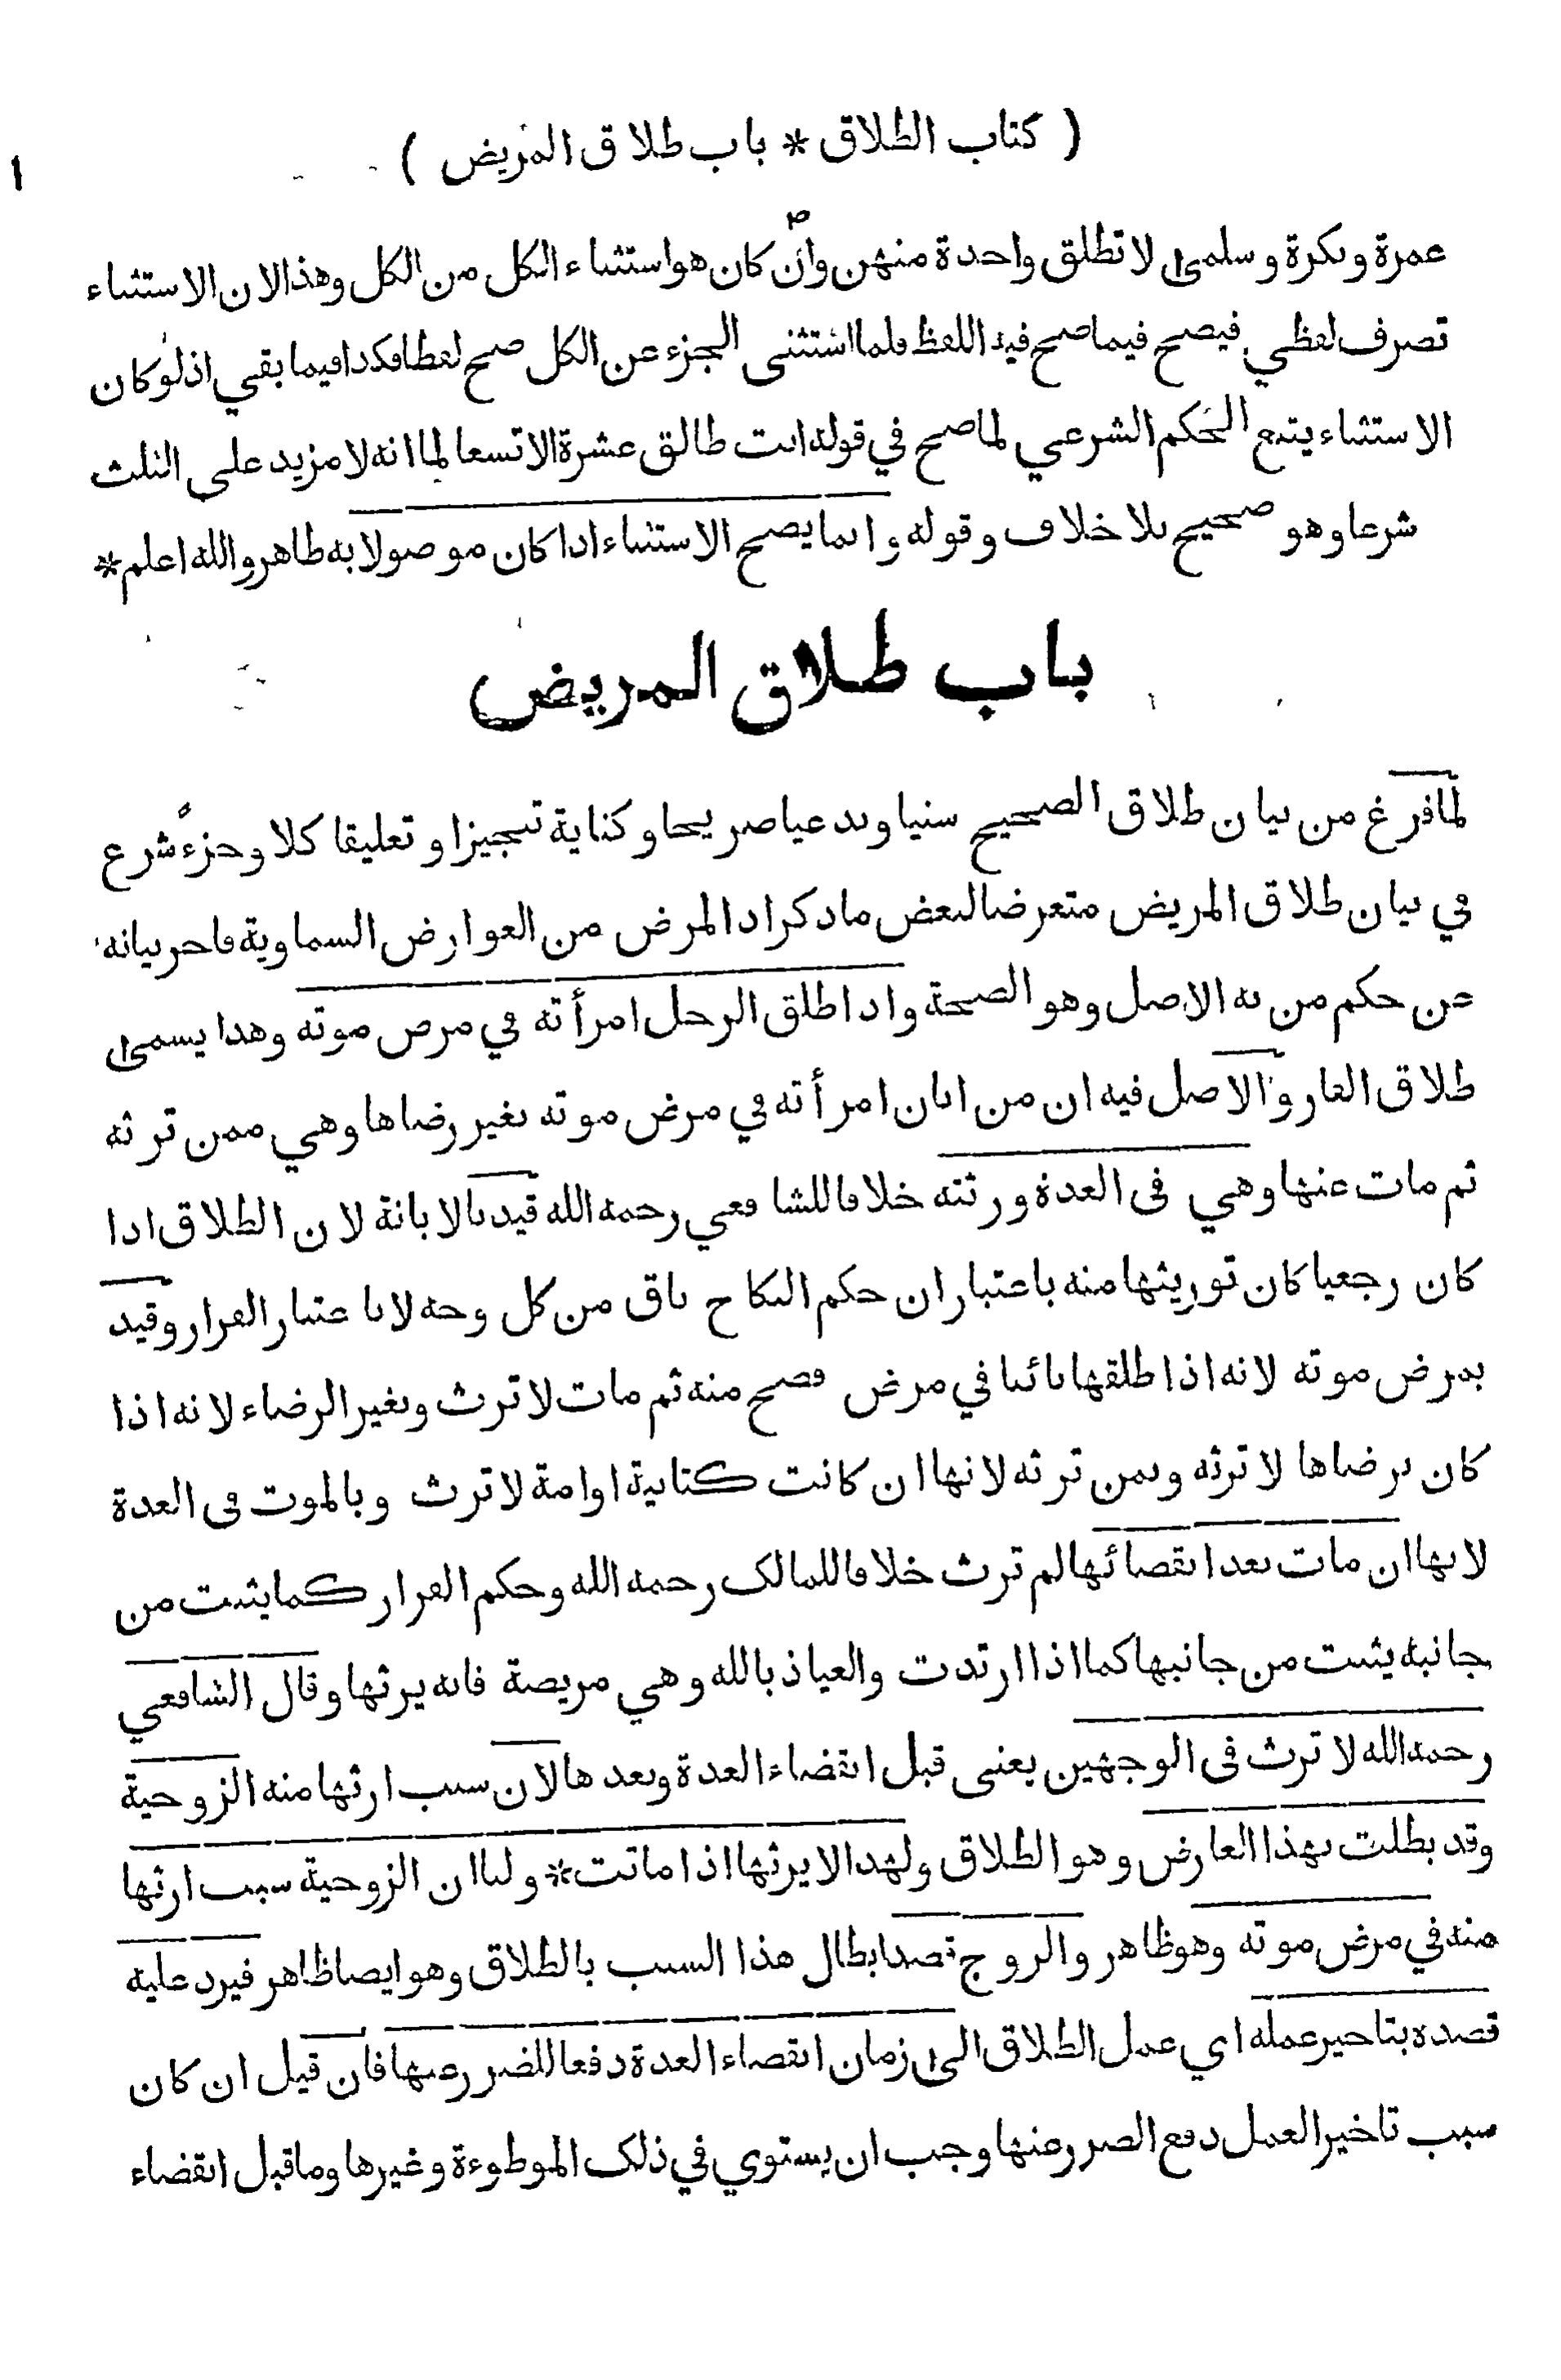 ( كتاب الطلاق * باب طلاق المريض )
١
عمرة وبكرة وسلمى لا تطلق واحدة منهن وان كان هو استثناء الكل من الكل وهذا لان الاستثناء
تصرف لفظي فيصح فيما صح فيه اللفظ فلما استثنى الجزء عن الكل صح لفظا فكذا فيما بقي اذ لو كان
الاستثناء يتبع الحكم الشرعي لما صح في قوله انت طالق عشرة الا تسعا لما انه لا مزيد على الثلث
شرعا وهو صحيح بلا خلاف وقوله وانما يصح الاستثناء اذا كان موصولا به ظاهر والله اعلم *
باب طلاق المريض
لما فرغ من بيان طلاق الصحيح سنيا وبدعيا صريحا وكناية تنجيزا وتعليقا كلا وجزءً شرع
في بيان طلاق المريض متعرضا لبعض ما ذكر اذ المرض من العوارض السماوية فاخر بيانه
عن حكم من به الاصل وهو الصحة واذا طلق الرجل امرأته في مرض موته وهذا يسمى
طلاق الفار والاصل فيه ان من ابان امرأته في مرض موته بغير رضاها وهي ممن ترثه
ثم مات عنها وهي فى العدة ورثته خلافا للشافعي رحمه الله قيد بالابانة لان الطلاق اذا
كان رجعيا كان توريثها منه باعتبار ان حكم النكاح باق من كل وجه لا باعتبار الفرار وقيد
بمرض موته لانه اذا طلقها بائنا في مرض فصح منه ثم مات لا ترث وبغير الرضاء لانه اذا
كان برضاها لا ترثه وبمن ترثه لانها ان كانت كتابية او امة لا ترث وبالموت فى العدة
لانها ان مات بعد انقضائها لم ترث خلافا للمالك رحمه الله وحكم الفرار كما يثبت من
جانبه يثبت من جانبها كما اذا ارتدت والعياذ بالله وهي مريضة فانه يرثها وقال الشافعي
رحمه الله لا ترث فى الوجهين يعنى قبل انقضاء العدة وبعدها لان سبب ارثها منه الزوجية
وقد بطلت بهذا العارض وهو الطلاق ولهذا لا يرثها اذا ماتت * ولنا ان الزوجية سبب ارثها
منه في مرض موته وهو ظاهر والزوج قصد ابطال هذا السبب بالطلاق وهو ايضا ظاهر فيرد عليه
قصده بتاخير عمله اي عمل الطلاق الى زمان انقضاء العدة دفعا للضرر عنها فان قيل ان كان
سبب تاخير العمل دفع الضرر عنها وجب ان يستوي في ذلك الموطوءة وغيرها وما قبل انقضاء